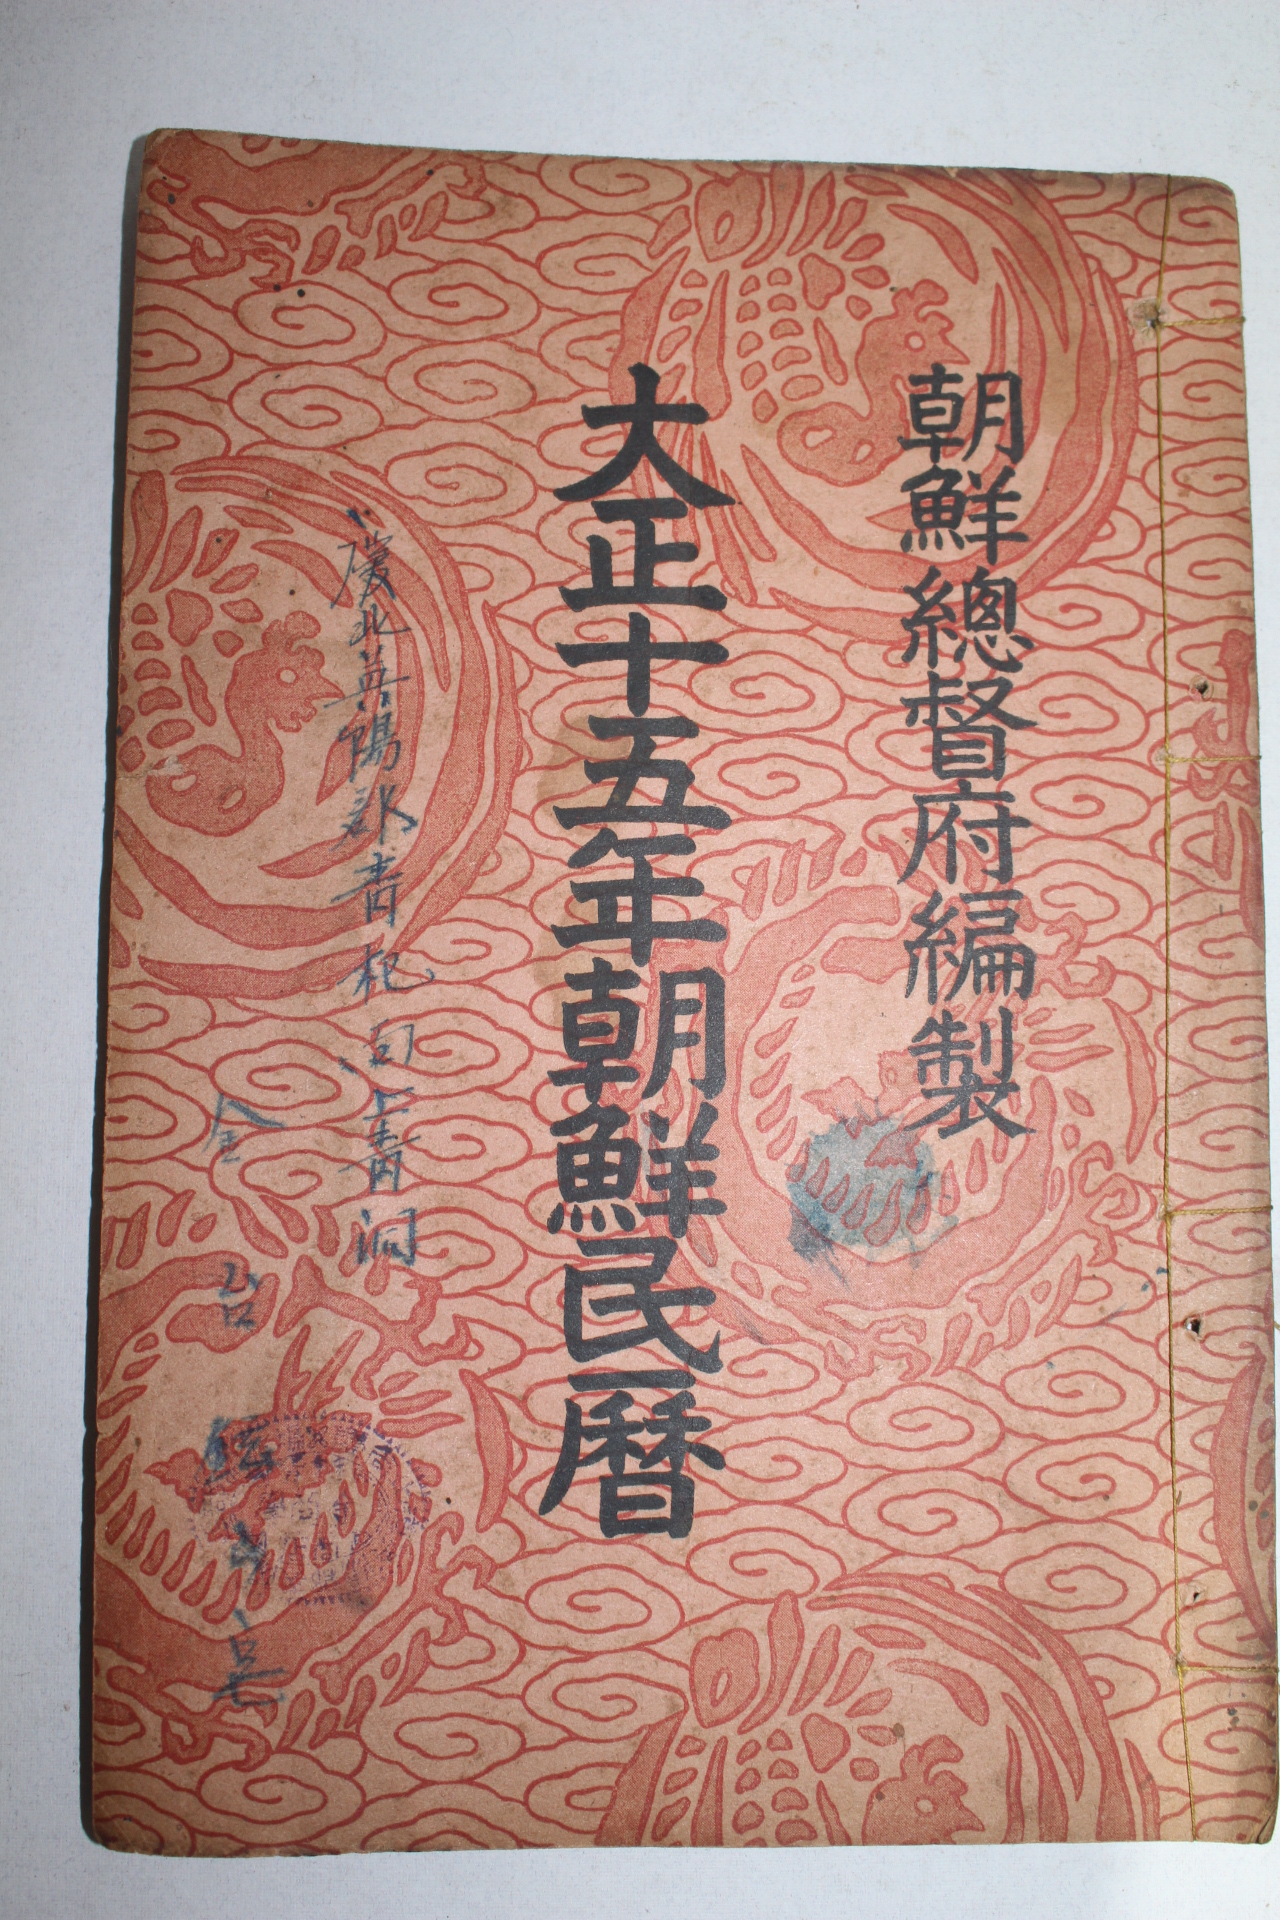 朝鮮總督府編製
大正十五年朝鮮民暦
慶北英陽郡青杞面上青洞